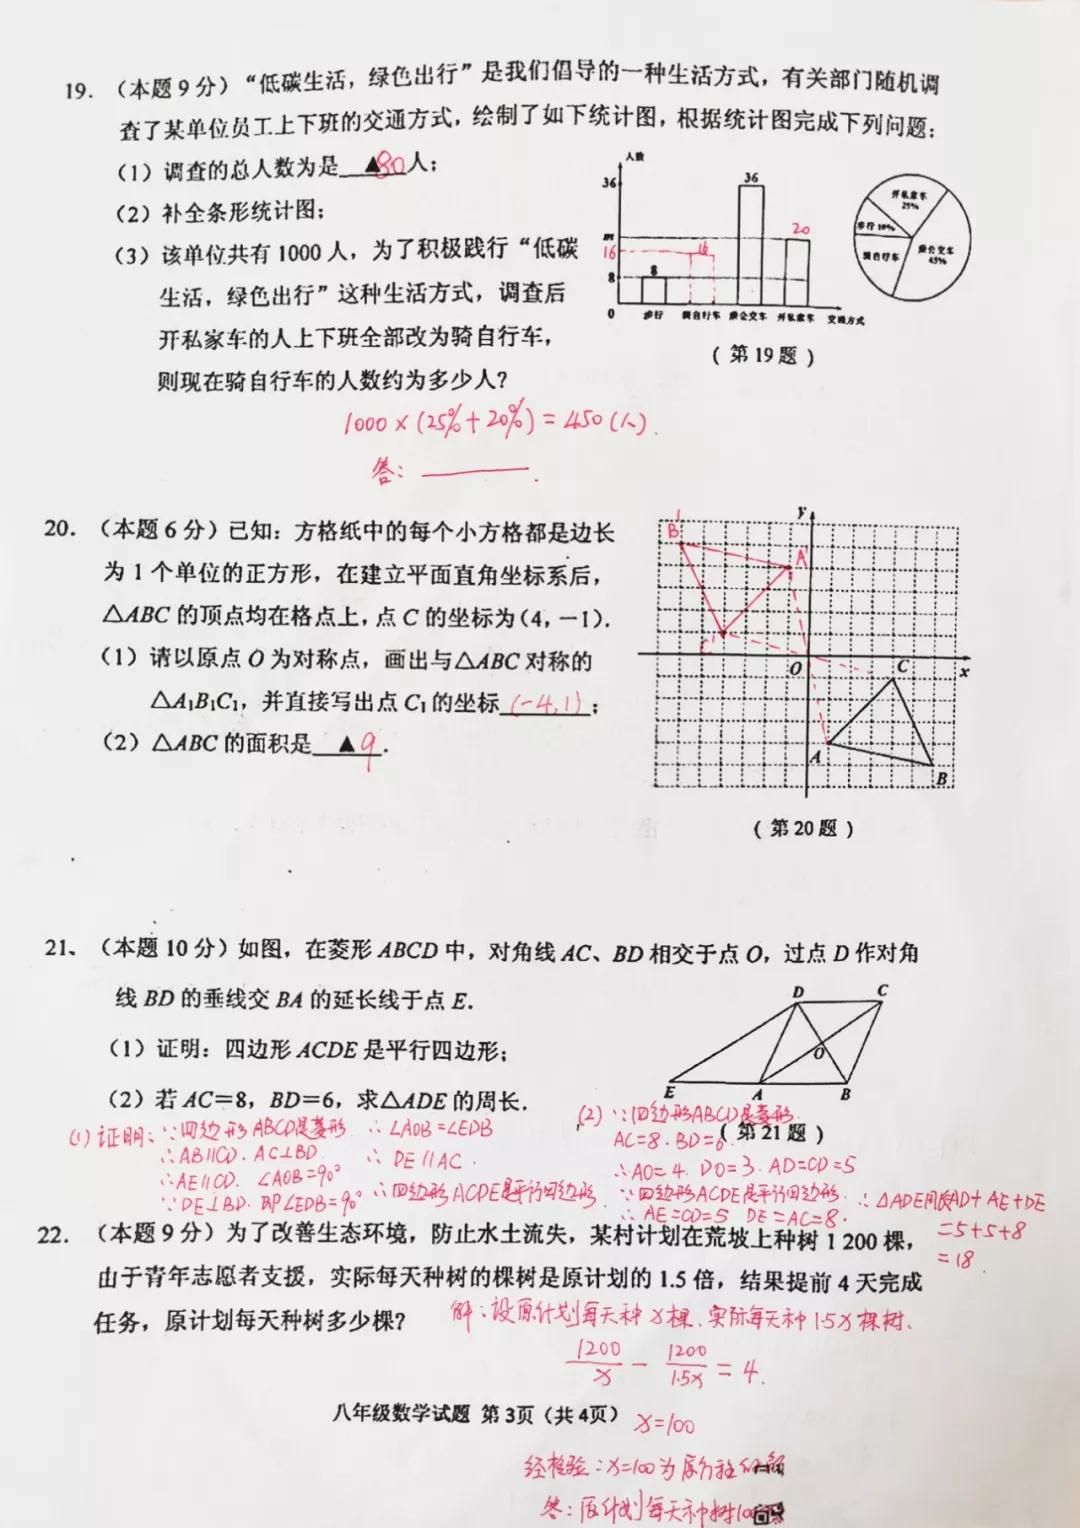 19. （本题9分）“低碳生活，绿色出行”是我们倡导的一种生活方式，有关部门随机调
查了某单位员工上下班的交通方式，绘制了如下统计图，根据统计图完成下列问题：
（1）调查的总人数为是▲80人；
（2）补全条形统计图；
（3）该单位共有1000人，为了积极践行“低碳
生活，绿色出行”这种生活方式，调查后
开私家车的人上下班全部改为骑自行车，
则现在骑自行车的人数约为多少人？
人数
36
16
8
0
8
16
36
20
步行 骑自行车 乘公交车 开私家车 交通方式
开私家车
25%
步行 10%
骑自行车
乘公交车
45%
（第19题）
1000×(25%+20%)=450(人).
答：
20. （本题6分）已知：方格纸中的每个小方格都是边长
为1个单位的正方形，在建立平面直角坐标系后，
△ABC的顶点均在格点上，点C的坐标为(4，－1).
（1）请以原点O为对称点，画出与△ABC对称的
△A₁B₁C₁，并直接写出点C₁的坐标(-4,1)；
（2）△ABC的面积是▲9.
y
B'
A'
C'
O
C
x
A
B
（第20题）
21、（本题10分）如图，在菱形ABCD中，对角线AC、BD相交于点O，过点D作对角
线BD的垂线交BA的延长线于点E.
（1）证明：四边形ACDE是平行四边形；
（2）若AC=8，BD=6，求△ADE的周长.
D C
O
E A B
（第21题）
(1)证明：∵四边形ABCD是菱形
∴AB∥CD. AC⊥BD
∴AE∥CD. ∠AOB=90°
∵DE⊥BD. 即∠EDB=90°
∴∠AOB=∠EDB
∴DE∥AC.
∴四边形ACDE是平行四边形
(2)∵四边形ABCD是菱形.
AC=8. BD=6
∴AO=4. DO=3. AD=CD=5
∵四边形ACDE是平行四边形.
∴AE=CD=5 DE=AC=8.
∴△ADE周长AD+AE+DE
=5+5+8
=18.
22. （本题9分）为了改善生态环境，防止水土流失，某村计划在荒坡上种树1 200棵，
由于青年志愿者支援，实际每天种树的棵树是原计划的1.5倍，结果提前4天完成
任务，原计划每天种树多少棵？
解：设原计划每天种x棵.实际每天种1.5x棵树.
1200/x - 1200/1.5x = 4.
八年级数学试题 第3页（共4页）
x=100
经检验：x=100为原方程的解
答：原计划每天种树100